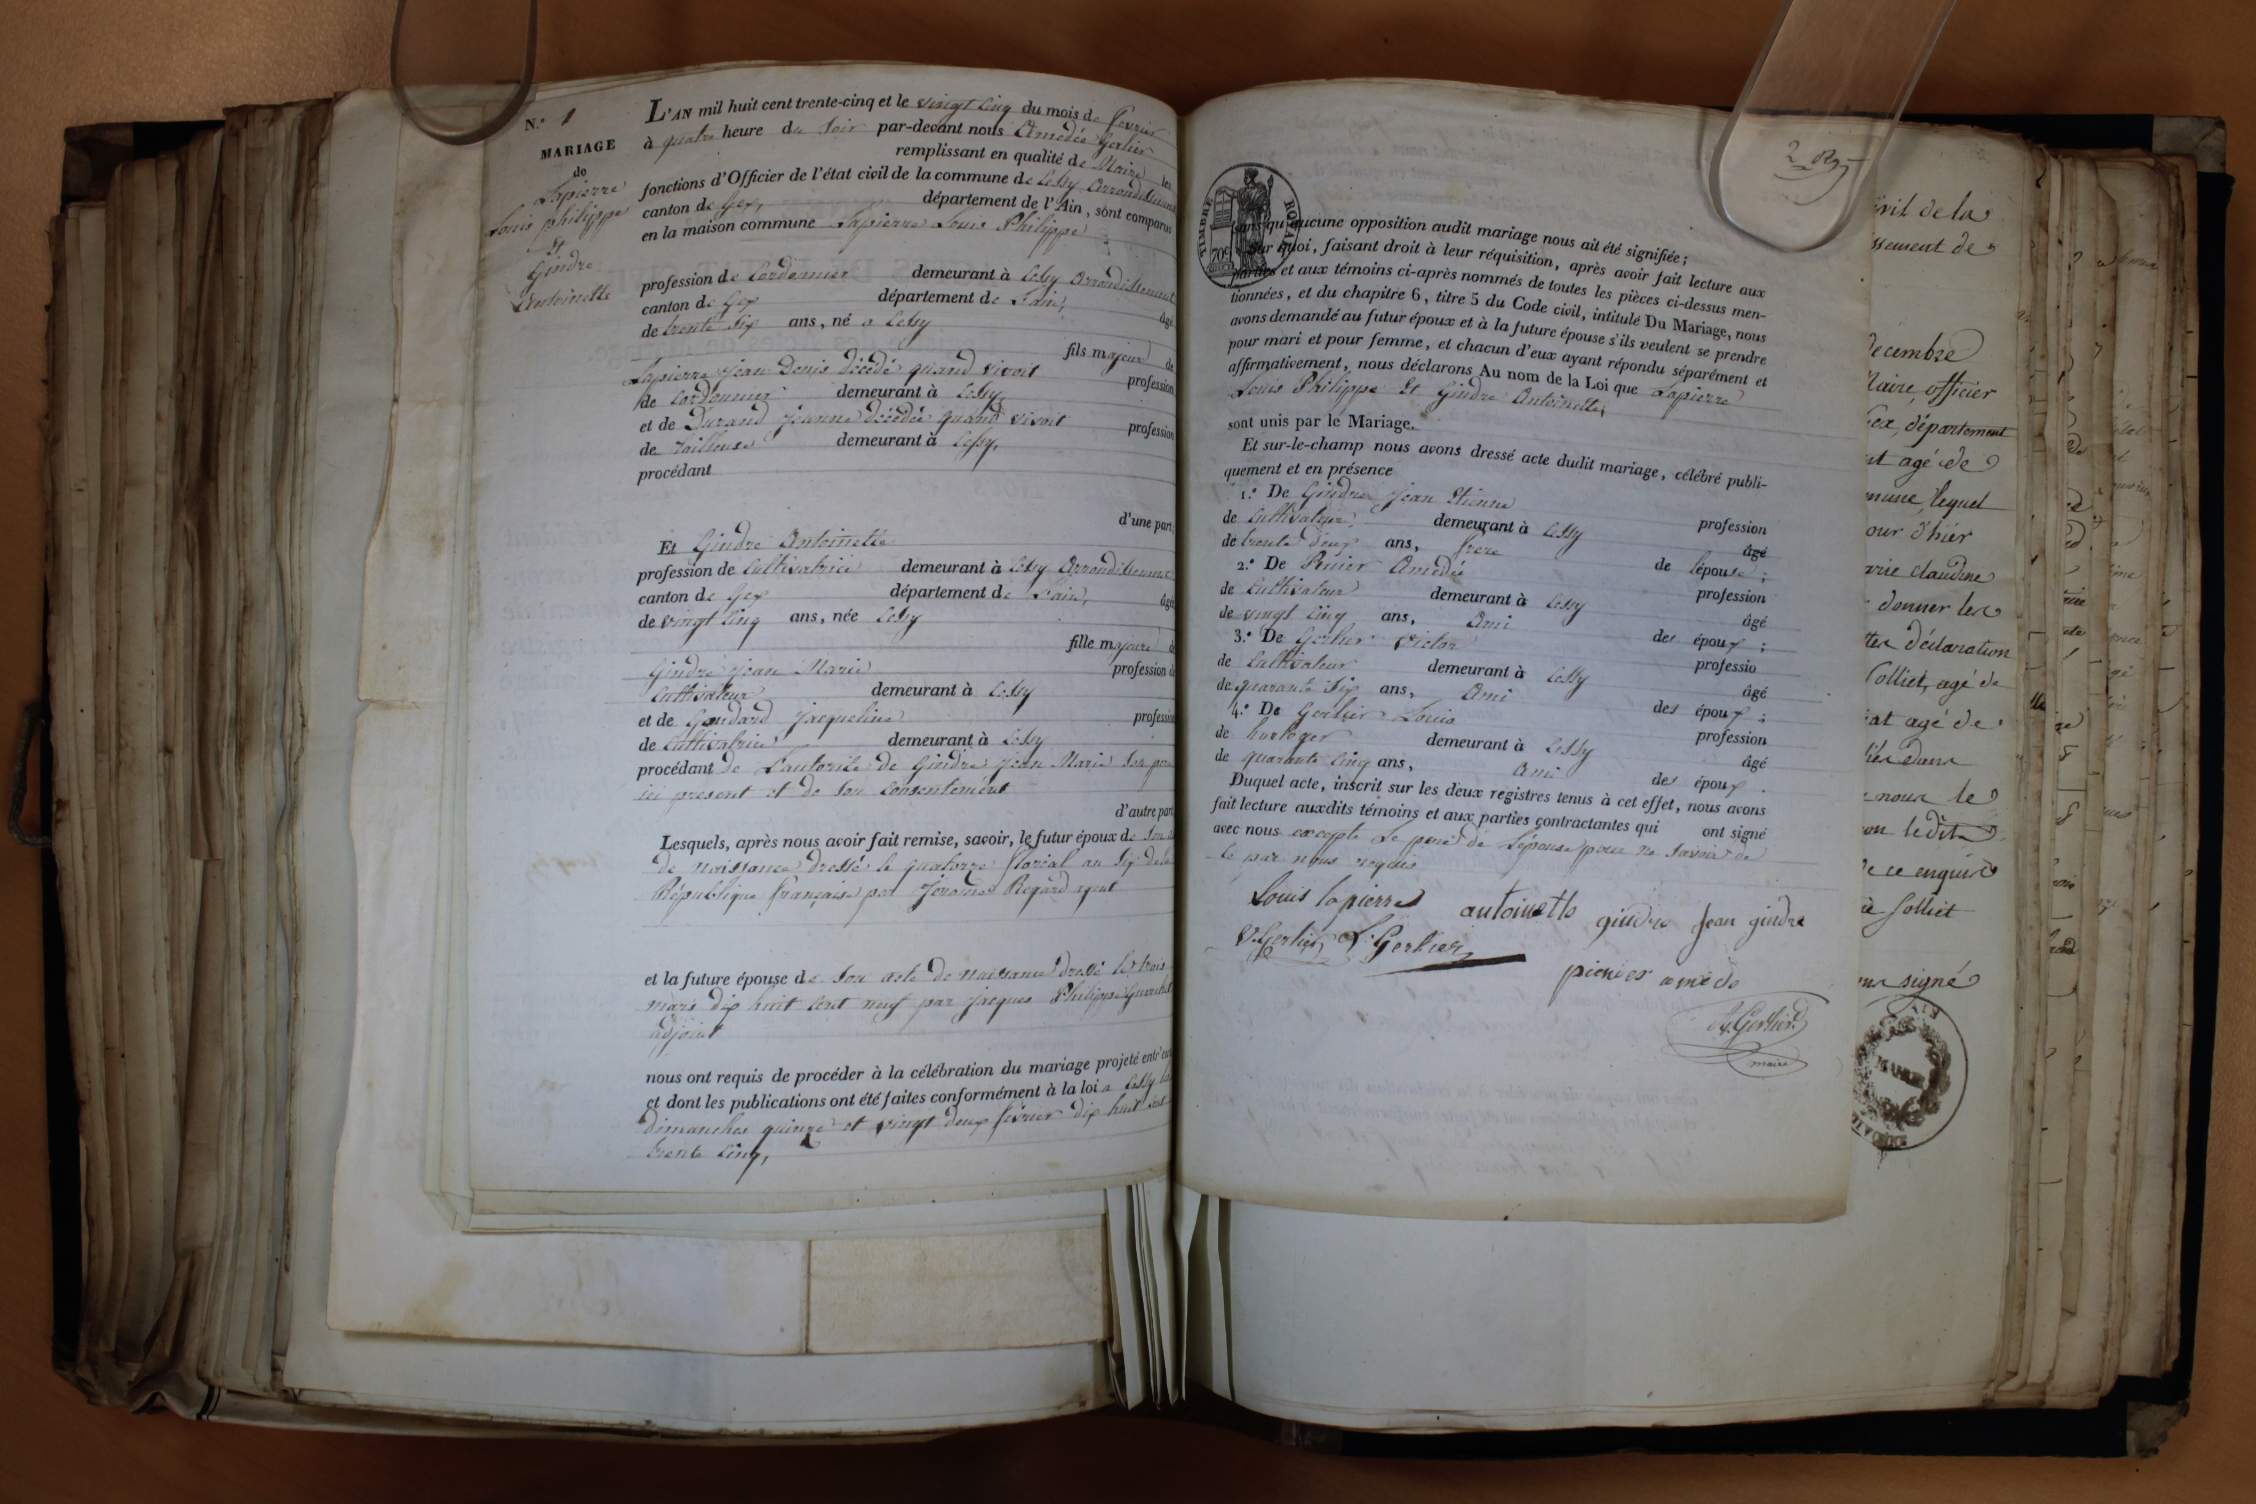 N.° 1
MARIAGE
de
Lapierre
Louis philippe
et
Gindre
Antoinette
L'AN mil huit cent trente-cinq et le vingt cinq du mois de fevrier
à quatre heure du soir par-devant nous Amedée Gerlier
remplissant en qualité de Maire les
fonctions d'Officier de l'état civil de la commune de Lessy Arrondissement
canton de Gex, département de l'Ain, sont comparus
en la maison commune Lapierre Louis Philippe
profession de Cordonnier demeurant à Lessy Arrondissement
canton de Gex département de l'ain, âgé
de trente six ans, né a Lessy
fils majeur de
Lapierre Jean Denis décédé quand vivoit profession
de Cordonnier demeurant à Lessy,
et de Durand Jeanne décédée quand vivoit profession
de Tailleuse demeurant à Lessy,
procédant
d'une part;
Et Gindre Antoinette
profession de Cultivatrice demeurant à Lessy Arrondissement
canton de Gex département de l'ain, âgé
de vingt cinq ans, née Lessy
fille majeure de
Gindre Jean Marie profession de
Cultivateur demeurant à Lessy
et de Gaudard Jacqueline profession
de Cultivatrice demeurant à Lessy
procédant de L'autorité de Gindre Jean Marie Son pere
ici present et de son Consentement
d'autre part
Lesquels, après nous avoir fait remise, savoir, le futur époux de Son
de naissance dressé le quatorze floréal an Six de la
République française par Jerome Regard agent
et la future épouse de Son acte de naissance dressé le trois
mars dix huit cent neuf par Jacques Philippe
adjoint
nous ont requis de procéder à la célébration du mariage projeté entr'eux
et dont les publications ont été faites conformément à la loi a Lessy les
dimanches quinze et vingt deux fevrier dix huit cent
trente cinq,
TIMBRE ROYAL
70c
sans qu'aucune opposition audit mariage nous ait été signifiée;
Sur quoi, faisant droit à leur réquisition, après avoir fait lecture aux
parties et aux témoins ci-après nommés de toutes les pièces ci-dessus men-
tionnées, et du chapitre 6, titre 5 du Code civil, intitulé Du Mariage, nous
avons demandé au futur époux et à la future épouse s'ils veulent se prendre
pour mari et pour femme, et chacun d'eux ayant répondu séparément et
affirmativement, nous déclarons Au nom de la Loi que Lapierre
Louis Philippe et Gindre Antoinette,
sont unis par le Mariage.
Et sur-le-champ nous avons dressé acte dudit mariage, célébré publi-
quement et en présence
1.° De Gindre Jean Etienne profession
de Cultivateur demeurant à Lessy âgé
de trente deux ans, frere de l'épouse;
2.° De Amedée profession
de Cultivateur demeurant à Lessy âgé
de vingt cinq ans, Ami des époux;
3.° De Gerlier Victor professio
de Cultivateur demeurant à Lessy âgé
de quarante six ans, Ami des époux;
4.° De Gerlier Louis profession
de horloger demeurant à Lessy âgé
de quarante cinq ans, Ami des époux.
Duquel acte, inscrit sur les deux registres tenus à cet effet, nous avons
fait lecture auxdits témoins et aux parties contractantes qui ont signé
avec nous excepté Le pere de L'épouse pour ne savoir de
ce par nous requis
Louis lapierre antoinette gindre Jean gindre
V. Gerlier L. Gerlier
amede
A. Gerlier
maire
ivil de la
issement de
décembre
Maire, officier
Gex, département
nt agé de
mune, lequel
our d'hier
arie claudine
donner les
tte déclaration
Colliet, agé de
at agé de
nous le
on le dit
de ce enquis
Colliet
signé
MAIRIE